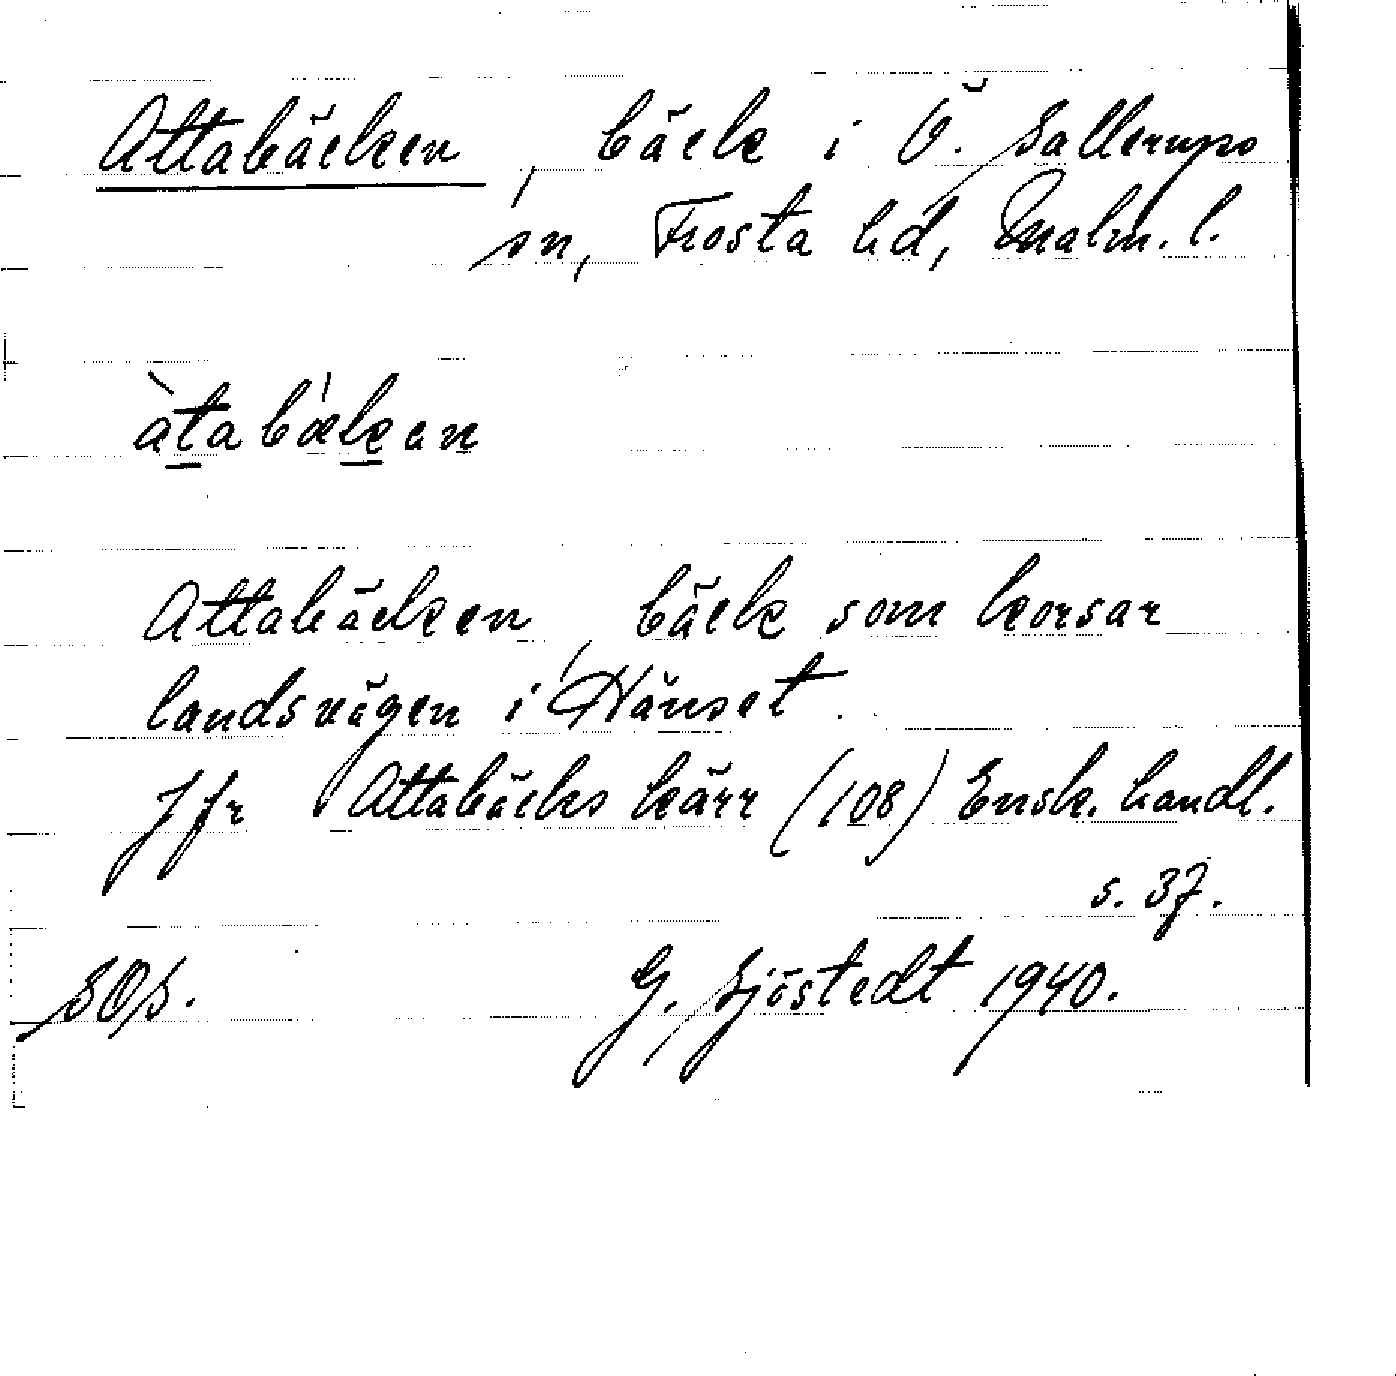 Attabäcken, bäck i Ö. Sallerups
sn, Frosta hd, Malm. l.
àtabækan
Attabäcken, bäck som korsar
landsvägen i Hänset.
Jfr Attabäcks kärr (108) Ensk. handl.
s. 37.
SOS. G. Sjöstedt 1940.